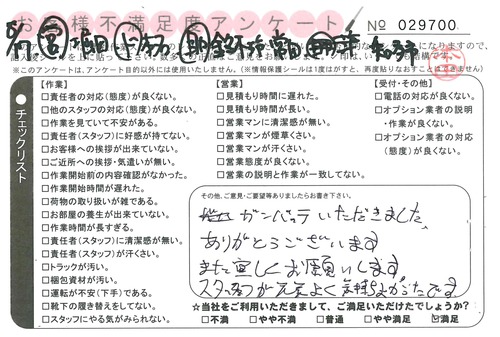 お客様不満足度アンケート
No 029700
※このアンケートは、アンケート目的以外には使用いたしません。(※情報保護シールは1度はがすと、再度貼りなおすことはできません)
チェックリスト
【作業】
□責任者の対応(態度)が良くない。
□他のスタッフの対応(態度)が良くない。
□作業を見ていて不安がある。
□責任者(スタッフ)に好感が持てない。
□お客様への挨拶が出来ていない。
□ご近所への挨拶・気遣いが無い。
□作業開始前の内容確認がなかった。
□作業開始時間が遅れた。
□荷物の取り扱いが雑である。
□お部屋の養生が出来ていない。
□作業時間が長すぎる。
□責任者(スタッフ)に清潔感が無い。
□責任者(スタッフ)が汗くさい。
□トラックが汚い。
□梱包資材が汚い。
□運転が不安(下手)である。
□靴下の履き替えをしてない。
□スタッフにやる気がみられない。
【営業】
□見積もり時間に遅れた。
□見積もり時間が長い。
□営業マンに清潔感が無い。
□営業マンが煙草くさい。
□営業マンが汗くさい。
□営業態度が良くない。
□営業の説明と作業が一致してない。
【受付・その他】
□電話の対応が良くない。
□オプション業者の説明
・作業が良くない。
□オプション業者の対応
(態度)が良くない。
その他、ご意見・ご要望等ありましたらお書き下さい。
ガンバッテいただきました。
ありがとうございます
また宜しくお願いします
スタッフが元気よく気持ちよかったです
☆当社をご利用いただきまして、ご満足いただけたでしょうか?
□不満 □やや不満 □普通 □やや満足 ☑満足